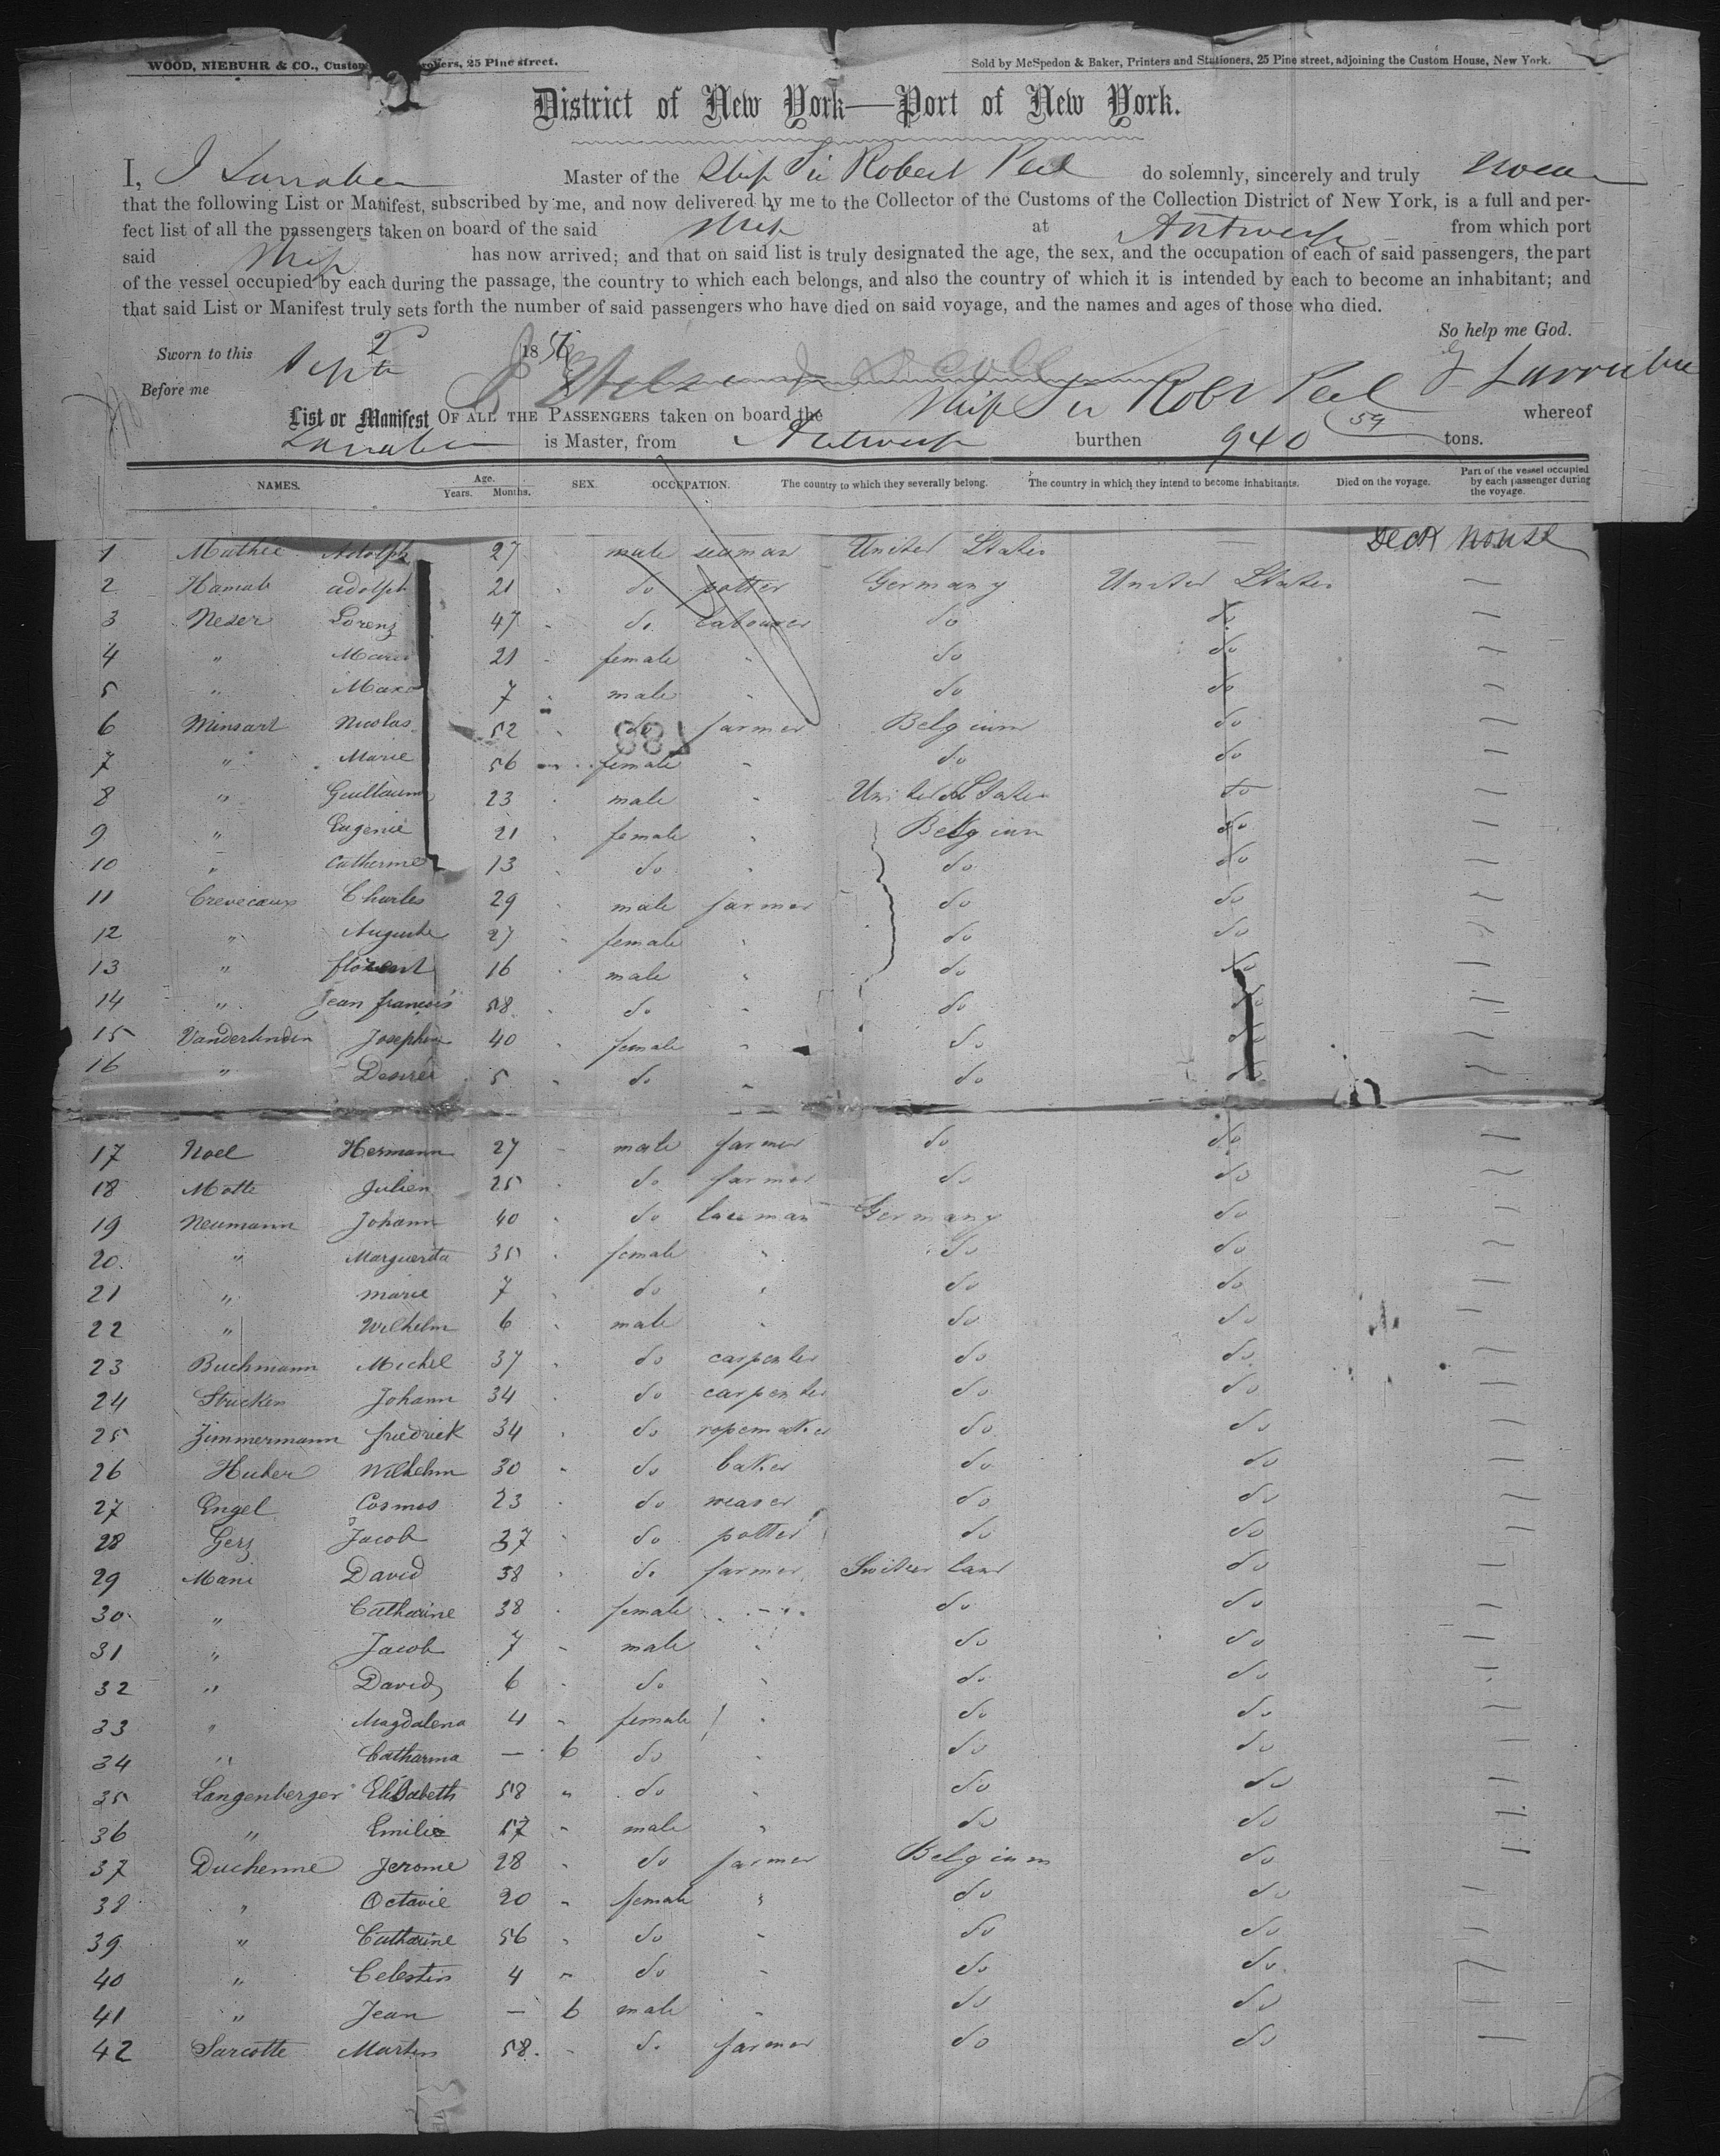 WOOD, NIEBUHR & CO., Custom 25 Pine street.
Sold by McSpedon & Baker, Printers and Stationers, 25 Pine street, adjoining the Custom House, New York.
District of New York—Port of New York.
I, J Larrabee Master of the Ship Sir Robert Peel do solemnly, sincerely and truly swear
that the following List or Manifest, subscribed by me, and now delivered by me to the Collector of the Customs of the Collection District of New York, is a full and per-
fect list of all the passengers taken on board of the said Ship at Antwerp from which port
said Ship has now arrived; and that on said list is truly designated the age, the sex, and the occupation of each of said passengers, the part
of the vessel occupied by each during the passage, the country to which each belongs, and also the country of which it is intended by each to become an inhabitant; and
that said List or Manifest truly sets forth the number of said passengers who have died on said voyage, and the names and ages of those who died.
So help me God.
Sworn to this 2 Septr 1856
J Larrabee
Before me
List or Manifest OF ALL THE PASSENGERS taken on board the Ship Sir Robt Peel whereof
Larrabee is Master, from Antwerp burthen 940 59 tons.
NAMES. Age. Years. Months. SEX. OCCUPATION. The country to which they severally belong. The country in which they intend to become inhabitants. Died on the voyage. Part of the vessel occupied by each passenger during the voyage.
1 Adolph 27 male seaman United States — Deck House
2 adolph 21 " do potter Germany United States —
3 Neser Lorenz 47 " do labourer do do —
4 " Marie 21 " female " do do —
5 " 7 " male " do do —
6 Minsart Nicolas 52 " do farmer Belgium do —
7 " Marie 56 " female " do do —
8 " Guillaume 23 " male " United States do —
9 " Eugenie 21 " female " Belgium do —
10 " Catherine 13 " do " do do —
11 Crevecaux Charles 29 " male farmer do do —
12 " Auguste 27 " female " do do —
13 " florent 16 " male " do do —
14 " Jean francois 58 " do " do do —
15 Vanderlinden Josephine 40 " female " do do —
16 " Desiree 5 " do " do do —
17 Noel Hermann 27 " male farmer do do —
18 Motte Julien 25 " do farmer do do —
19 Neumann Johann 40 " do Germany do —
20 " Marguerita 35 " female " do do —
21 " marie 7 " do " do do —
22 " Wilhelm 6 " male " do do —
23 Buchmann Michel 37 " do carpenter do do —
24 Stricken Johann 34 " do carpenter do do —
25 Zimmermann friedrick 34 " do ropemaker do do —
26 Huber Wilhelm 30 " do baker do do —
27 Engel Cosmos 23 " do weaver do do —
28 Gerz Jacob 37 " do potter do do —
29 Mani David 38 " do farmer Switzerland do —
30 " Catharine 38 " female " do do —
31 " Jacob 7 " male " do do —
32 " David 6 " do " do do —
33 " Magdalena 4 " female " do do —
34 " Catharina — 6 do " do do —
35 Langenberger Elisabeth 58 " do " do do —
36 " Emilie 17 " male " do do —
37 Duchenne Jerome 28 " do farmer Belgium do —
38 " Octavie 20 " female " do do —
39 " Catharine 56 " do " do do —
40 " Celestin 4 " do " do do —
41 " Jean — 6 male " do do —
42 Sarcotte Martin 58 " do farmer do do —